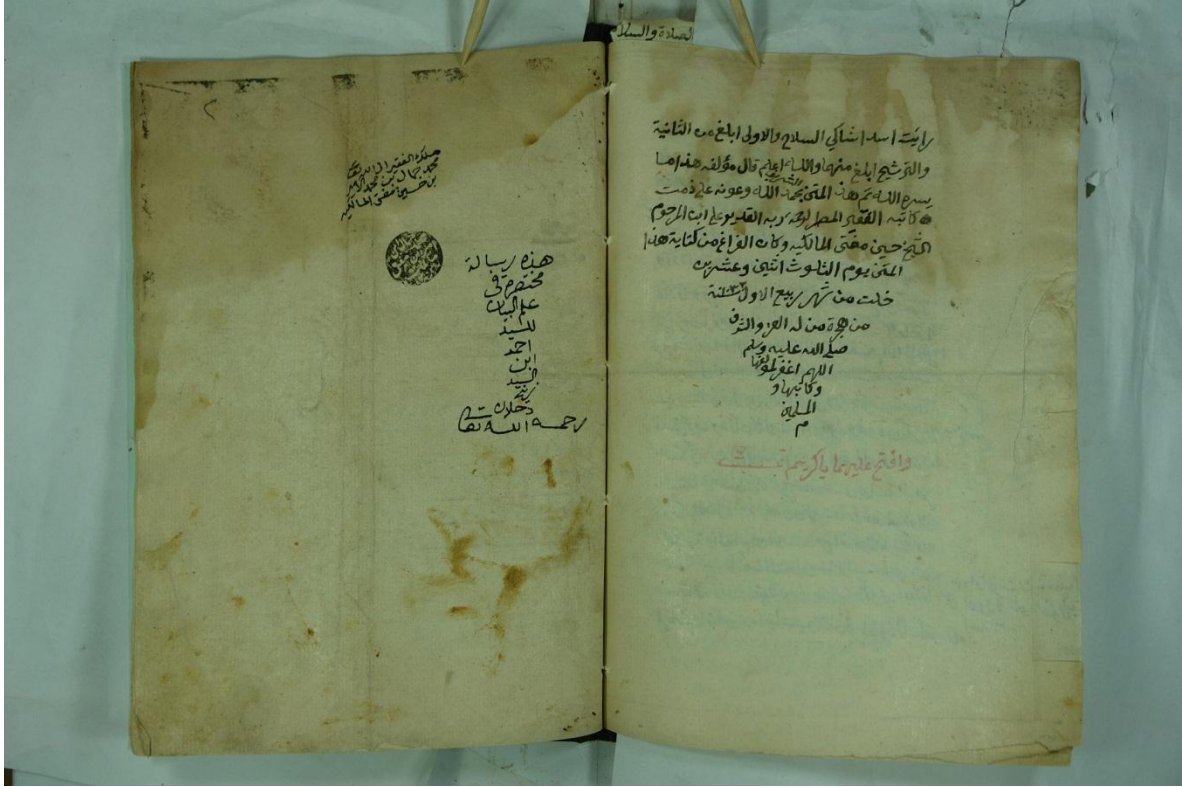 الصلاة والسلا
رايت اسدا شاكي السلاح والاولى ابلغ من الثانية
والترشيح ابلغ منهما والله اعلم قال مؤلفه هذا ما
يسره الله تم هذ المتن بحمد الله وعونه على ذمت
كاتبه الفقير المضطر لوجه ربه القدير على ابن المرحوم
الشيخ حسين مفتى المالكيه وكان الفراغ من كتابة هذا
المتن يوم الثلوث اثنين وعشرين
خلت من شهر ربيع الاول سنة
من هجرة من له العز والشرف
صلى الله عليه وسلم
اللهم اغفر لمؤلفها
وكاتبها و
المسلمين
م
وافتح عليهما ياكريم تمت
ملكه الفقير الى الله تعالى
محمد جمال بن محمد الامير
بن حسين مفتى المالكيه
هذه رسالة
مختصرة فى
علم البيان
للسيد
احمد
ابن
السيد
زينى
دحلان
رحمه الله تعالى